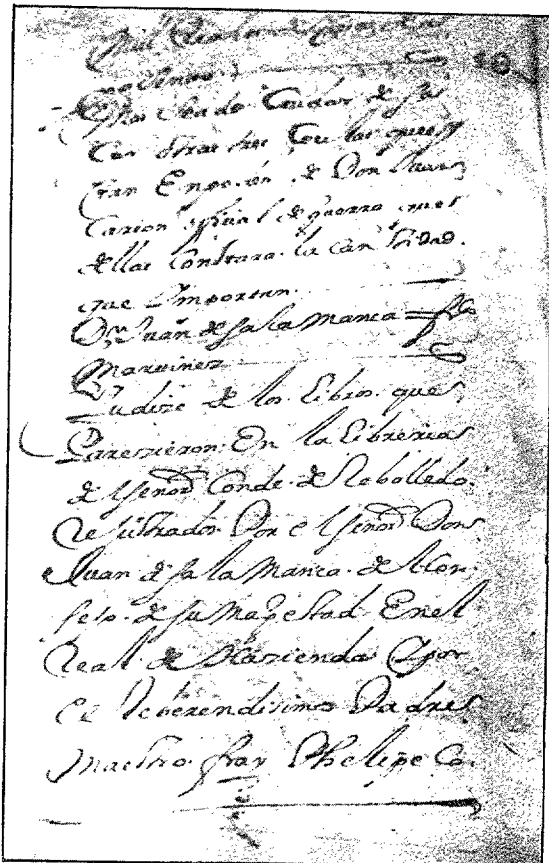 Por Cuadro Ciudar de sus
Con otras tres Con las quees
tran En poder de Don Juan
Carrion oficial de guerra que
dellas Constara la Cantidad
que Importan.
Don Juan de salamanca
Martinez
Yndize de los Libros que
Parezieron En la Libreria
de lseñor Conde de Rebolledo
Rejistrados Por e lseñor Don
Juan de salamanca del Con
sejo de su Magestad En el
Real de Hazienda Y por
El Reberendisimo Padre
Maestro fray Phelipe Co